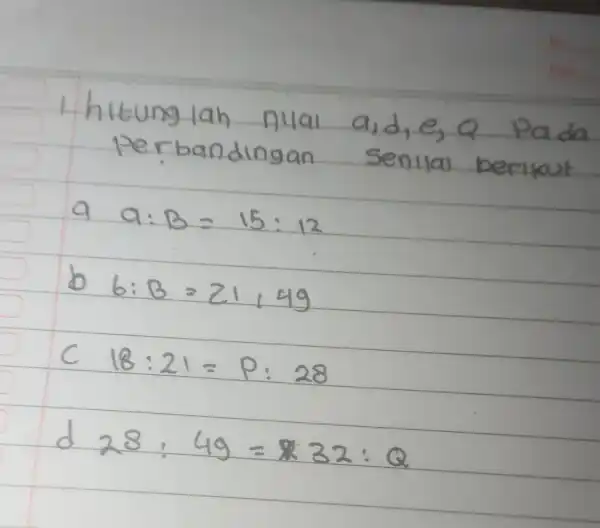 1 hitunglah nilai a, d, e, Q Pada
Perbandingan Senilai berikut
a a : B = 15 : 12
b 6 : B = 21 : 49
C 18 : 21 = P : 28
d 28 : 49 = 32 : Q